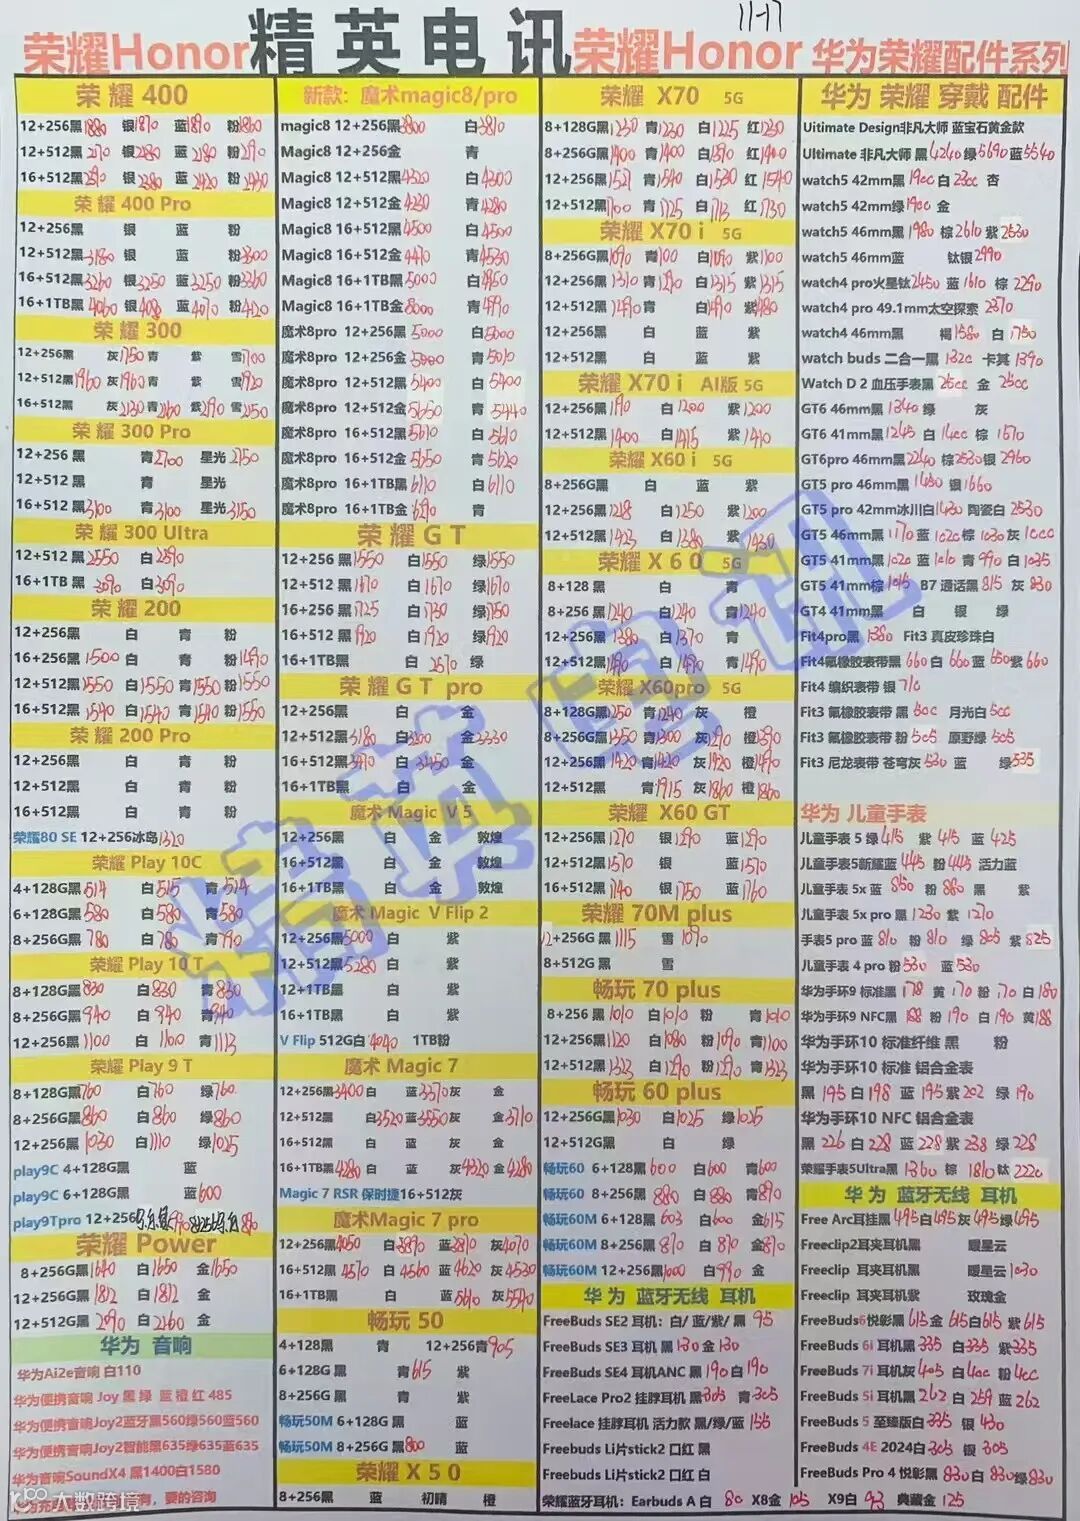 11-17
荣耀Honor 精英电讯 荣耀Honor 华为荣耀配件系列
荣耀 400
12+256黑1880 银1870 蓝1890 粉1860
12+512黑 银2180 蓝2180 粉2190
16+512黑 银2380 蓝2420 粉2430
荣耀 400 Pro
12+256黑 银 蓝 粉
12+512黑3180 银 蓝 粉3300
16+512黑3260 银3250 蓝3250 粉3360
16+1TB黑4060 银 蓝4070 粉4120
荣耀 300
12+256黑 灰1750 青 紫 雪1700
12+512黑1960 灰1960 青 紫 雪1920
16+512黑 灰2130 青2160 紫2190 雪2150
荣耀 300 Pro
12+256 黑 青2700 星光2750
12+512 黑 青 星光
16+512黑3100 青3100 星光3150
荣耀 300 Ultra
12+512 黑2550 白
16+1TB 黑 白
荣耀 200
12+256黑 白 青 粉
16+256黑1500 白 青 粉1490
12+512黑1550 白1550 青1550 粉1550
16+512黑1540 白1540 青1540 粉1550
荣耀 200 Pro
12+256黑 白 青 粉
12+512黑 白 青 粉
16+512黑 白 青 粉
荣耀80 SE 12+256冰岛1320
荣耀 Play 10C
4+128G黑514 白515 青514
6+128G黑580 白580 青580
8+256G黑780 白780 青790
荣耀 Play 10 T
8+128G黑830 白830 青830
8+256G黑940 白940 青940
12+256黑1100 白1100 青1113
荣耀 Play 9 T
8+128G黑760 白760 绿760
8+256G黑860 白860 绿860
12+256黑1030 白1110 绿1025
play9C 4+128G黑 蓝
play9C 6+128G黑 蓝600
play9Tpro 12+256
荣耀 Power
8+256G黑1640 白1650 金1650
12+256G黑1812 白1812 金
12+512G黑 白2160 金
华为 音响
华为Ai2e音响 白110
华为便携音响 Joy 黑 绿 蓝 橙 红 485
华为便携音响Joy2蓝牙黑560绿560蓝560
华为便携音响Joy2智能黑635绿635蓝635
华为音响SoundX4 黑1400白1580
大数跨境
要的咨询
新款：魔术magic8/pro
magic8 12+256黑3800 白3810
Magic8 12+256金 青
Magic8 12+512黑4320 白4300
Magic8 12+512金4230 青4280
Magic8 16+512黑4500 白4500
Magic8 16+512金4470 青4530
Magic8 16+1TB黑5000 白
Magic8 16+1TB金 青4990
魔术8pro 12+256黑5000 白5000
魔术8pro 12+256金 青5010
魔术8pro 12+512黑5400 白5400
魔术8pro 12+512金 青5440
魔术8pro 16+512黑5610 白5610
魔术8pro 16+512金5650 青5620
魔术8pro 16+1TB黑6110 白6110
魔术8pro 16+1TB金 青
荣耀 G T
12+256 黑1550 白1550 绿1550
12+512 黑1670 白1670 绿1670
16+256 黑1725 白1730 绿1750
16+512 黑1920 白1920 绿1920
16+1TB黑 白2570 绿
荣耀 G T pro
12+256黑 白 金
12+512黑3180 白3200 金
16+512黑 白3450 金
16+1TB黑 白 金
魔术 Magic V 5
12+256黑 白 金 敦煌
16+512黑 白 金 敦煌
16+1TB黑 白 金 敦煌
魔术 Magic V Flip 2
12+256黑5000 白 紫
12+512黑5280 白 紫
12+1TB黑 白 紫
16+1TB黑 白 紫
V Flip 512G白4040 1TB粉
魔术 Magic 7
12+256黑3400 白 蓝3370 灰 金
12+512黑 白3520 蓝3550 灰 金3710
16+512黑 白 蓝 灰 金
16+1TB黑4280 白 蓝 灰4320 金4280
Magic 7 RSR 保时捷16+512灰
魔术Magic 7 pro
12+256黑4050 白 蓝 灰4070
16+512黑4570 白4560 蓝4620 灰4530
16+1TB黑 白 蓝5610 灰5540
畅玩 50
4+128黑 青 12+256青905
6+128G黑 青615 紫
8+256G黑 青 紫
畅玩50M 6+128G 黑 蓝
畅玩50M 8+256G 黑800 蓝
荣耀 X 5 0
8+256黑 蓝 初晴 橙
荣耀 X70 5G
8+128G黑1230 青1230 白1225 红1230
8+256G黑1400 青1400 白1390 红1400
12+256黑1521 青1540 白1530 红1540
12+512黑1700 青1725 白1713 红1730
荣耀 X70 i 5G
8+256G黑1090 青1100 白1090 紫1100
12+256黑1310 青 白1315 紫1315
12+512黑1490 青 白1490 紫1480
12+256黑 白 蓝 紫
12+512黑 白 蓝 紫
荣耀 X70 i AI版 5G
12+256黑1190 白1200 紫1200
12+512黑1400 白1415 紫1410
荣耀 X60 i 5G
8+256G黑 白 蓝 紫
12+256黑1218 白1250 紫1200
12+512黑1423 白1380 紫1430
荣耀 X 6 0 5G
8+128 黑 白 青
8+256 黑1240 白1240 青1240
12+256黑1380 白1370 青
12+512黑1490 白1490 青1490
荣耀 X60pro 5G
8+128G黑1250 青1240 灰 橙
8+256G黑1350 青1300 灰1290 橙1390
12+256黑1420 青1420 灰1420 橙1490
12+512黑 青1915 灰1860 橙1860
荣耀 X60 GT
12+256黑1270 银1290 蓝1290
12+512黑1570 银 蓝1570
16+512黑1740 银1750 蓝1760
荣耀 70M plus
12+256G 黑1115 雪1090
8+512G黑 雪
畅玩 70 plus
8+256 黑1010 白1010 粉 青1010
12+256黑1120 白1080 粉1090 青1100
12+512黑1323 白1290 粉1290 青1323
畅玩 60 plus
12+256G黑1030 白1025 绿1025
12+512G黑 白 绿
畅玩60 6+128黑600 白600 青600
畅玩60 8+256黑880 白880 青890
畅玩60M 6+128黑603 白600 金615
畅玩60M 8+256黑870 白870 金870
畅玩60M 12+256黑1000 白990 金
华为 蓝牙无线 耳机
FreeBuds SE2 耳机：白/蓝/紫/黑 95
FreeBuds SE3 耳机 黑130 金130
FreeBuds SE4 耳机ANC 黑190 白190
FreeLace Pro2 挂脖耳机 黑305 青305
Freelace 挂脖耳机 活力款 黑/绿/蓝 155
Freebuds Li片stick2 口红 黑
Freebuds Li片stick2 口红 白
荣耀蓝牙耳机：Earbuds A 白 80 X8金 105 X9白 93 典藏金 125
华为 荣耀 穿戴 配件
Uitimate Design非凡大师 蓝宝石黄金款
Ultimate 非凡大师 黑4240 绿5690 蓝5540
watch5 42mm黑 白 杏
watch5 42mm绿 金
watch5 46mm黑1980 棕2610 紫2530
watch5 46mm蓝 钛银2990
watch4 pro火星钛2450 蓝1610 棕2290
watch4 pro 49.1mm太空探索
watch4 46mm黑 褐1580 白1750
watch buds 二合一黑1320 卡其1390
Watch D 2 血压手表黑 金
GT6 46mm黑1340 绿 灰
GT6 41mm黑1245 白 棕1570
GT6pro 46mm黑2240 棕2530 银2960
GT5 pro 46mm黑1480 银1660
GT5 pro 42mm冰川白1430 陶瓷白2530
GT5 46mm黑1170 蓝1020 棕1030 灰
GT5 41mm黑1020 蓝1010 青990 白1035
GT5 41mm棕1015 B7 通话黑815 灰830
GT4 41mm黑 白 银 绿
Fit4pro黑1380 Fit3 真皮珍珠白
Fit4氟橡胶表带黑660 白660 蓝650 紫660
Fit4 编织表带 银710
Fit3 氟橡胶表带 黑 月光白
Fit3 氟橡胶表带 粉505 原野绿505
Fit3 尼龙表带 苍穹灰530 蓝 绿535
华为 儿童手表
儿童手表 5 绿415 紫415 蓝425
儿童手表5新耀蓝445 粉445 活力蓝
儿童手表 5x 蓝850 粉880 黑 紫
儿童手表 5x pro 黑1230 紫1270
手表5 pro 蓝810 粉810 绿805 紫825
儿童手表 4 pro 粉530 蓝530
华为手环9 标准黑178 黄170 粉170 白180
华为手环9 NFC黑188 粉190 白190 黄188
华为手环10 标准纤维 黑 粉
华为手环10 标准 铝合金表
黑195 白198 蓝195 紫202 绿190
华为手环10 NFC 铝合金表
黑226 白228 蓝228 紫238 绿228
荣耀手表5Ultra黑1360 棕1810 钛2220
华为 蓝牙无线 耳机
Free Arc耳挂黑495 白495 灰495 绿495
Freeclip2耳夹耳机黑 暖星云
Freeclip 耳夹耳机黑 暖星云1030
Freeclip 耳夹耳机紫 玫瑰金
FreeBuds6悦彰黑615 金615 白615 紫615
FreeBuds 6i 耳机黑335 白335 紫335
FreeBuds 7i 耳机灰405 白400 粉400
FreeBuds 5i 耳机黑262 白259 蓝262
FreeBuds 5 至臻版白335 银430
FreeBuds 4E 2024白305 银305
FreeBuds Pro 4 悦彰黑830 白830 绿830
精英电讯